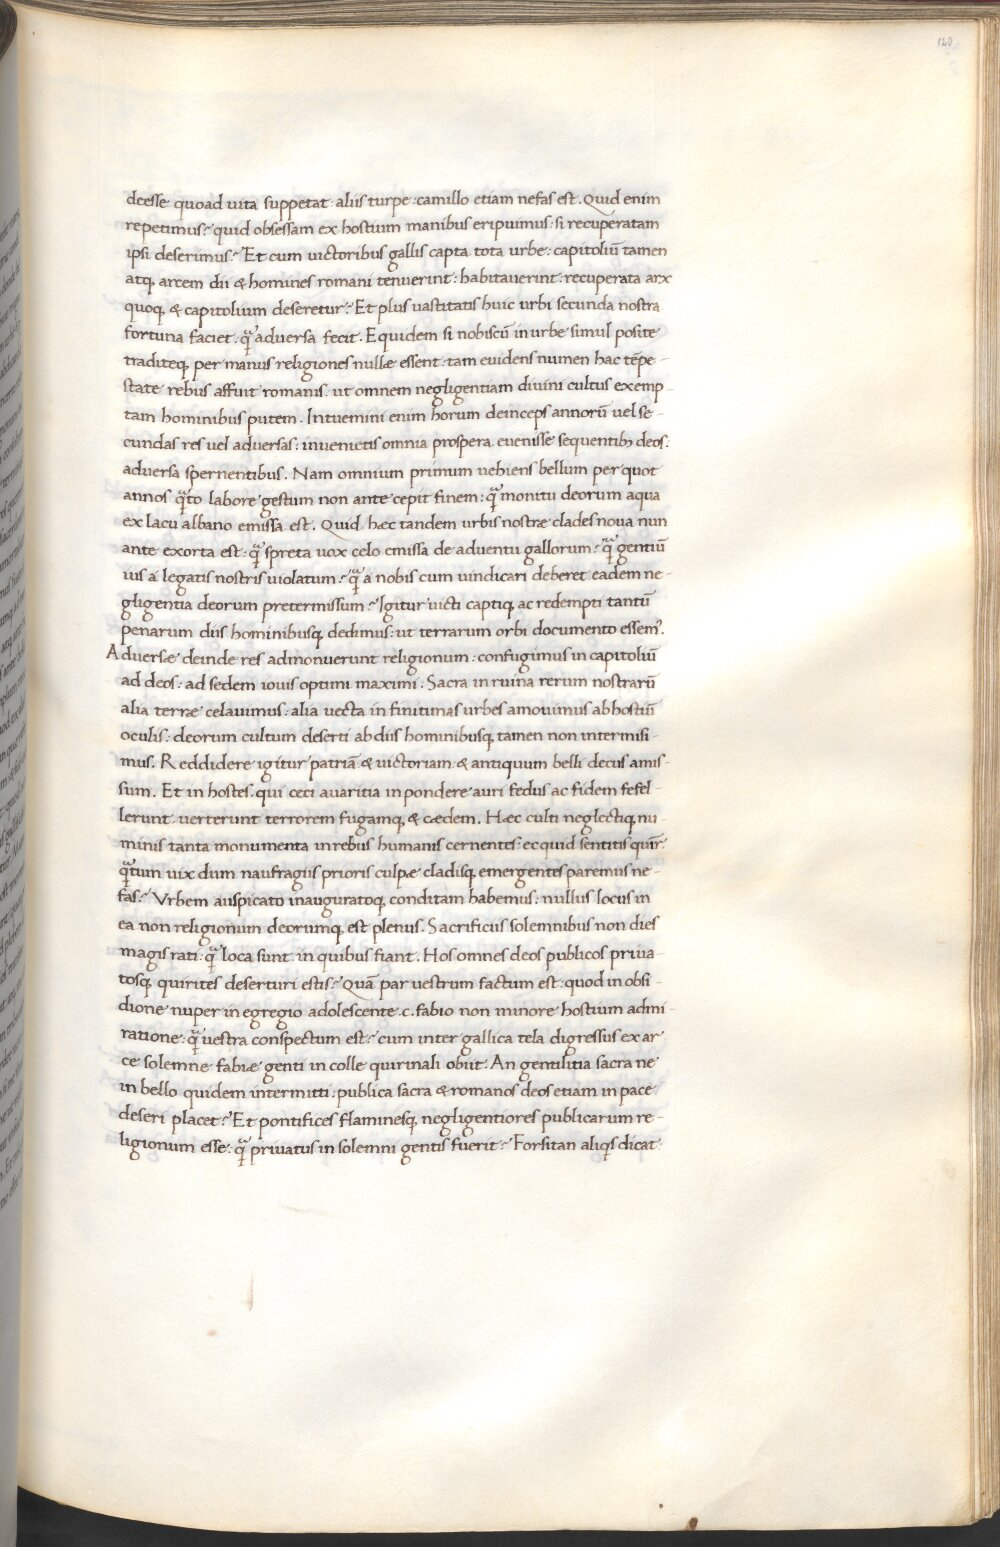 140
deesse quoad uita suppetat: aliis turpe: camillo etiam nefas est. Quid enim
repetimus? quid obsessam ex hostium manibus eripuimus: si recuperatam
ipsi deserimus? Et cum uictoribus gallis capta tota urbe: capitoliũ tamen
atq; arcem dii & homines romani tenuerint: habitauerint: recuperata arx
quoq; & capitolium deseretur? Et plus uastitatis huic urbi secunda nostra
fortuna faciet: qͣ̃ aduersa fecit. Equidem si nobiscũ in urbe simul posite
traditeq; per manus religiones nullæ essent: tam euidens numen hac tẽpe-
state rebus affuit romanis: ut omnem negligentiam diuini cultus exemp-
tam hominibus putem. Intuemini enim horum deinceps annorũ uel se-
cundas res uel aduersas: inuenietis omnia prospera euenisse sequentib; deos:
aduersa spernentibus. Nam omnium primum uehiens bellum per quot
annos qͣ̃to labore gestum non ante cepit finem: qͣ̃ monitu deorum aqua
ex lacu albano emissa est. Quid hæc tandem urbis nostræ clades noua nun
ante exorta est: qͣ̃ spreta uox celo emissa de aduentu gallorum? qͣ̃ gentiũ
ius a legatis nostris uiolatum? qͣ̃ a nobis cum uindicari deberet eadem ne-
gligentia deorum pretermissum? Igitur uicti captiq; ac redempti tantũ
penarum diis hominibusq; dedimus: ut terrarum orbi documento essemꝰ.
Aduersæ deinde res admonuerunt religionum: confugimus in capitoliũ
ad deos: ad sedem iouis optimi maximi: Sacra in ruina rerum nostrarũ
alia terræ celauimus: alia uecta in finitimas urbes amouimus ab hostiũ
oculis: deorum cultum deserti ab diis hominibusq; tamen non intermisi-
mus. Reddidere igitur patriã & uictoriam & antiquum belli decus amis-
sum. Et in hostes qui ceci auaritia in pondere auri fedus ac fidem fefel-
lerunt uerterunt terrorem fugamq; & cædem. Hæc culti neglectiq; nu-
minis tanta monumenta in rebus humanis cernentes: ecquid sentitis quir̃
qͣ̃tum uix dum naufragiis prioris culpæ cladisq; emergentes paremus ne-
fas? Vrbem auspicato inauguratoq; conditam habemus: nullus locus in
ea non religionum deorumq; est plenus. Sacrificiis solemnibus non dies
magis rati: qͣ̃ loca sunt in quibus fiant. Hos omnes deos publicos priua-
tosq; quirites deserturi estis? Quã par uestrum factum est: quod in obsi-
dione nuper in egregio adolescente .c. fabio non minore hostium admi-
ratione: qͣ̃ uestra conspectum est? cum inter gallica tela digressus ex ar
ce solemne fabiæ genti in colle quirinali obiit. An gentilitia sacra ne
in bello quidem intermitti: publica sacra & romanos deos etiam in pace
deseri placet? Et pontifices flaminesq; negligentiores publicarum re-
ligionum esse: qͣ̃ priuatus in solemni gentis fuerit? Forsitan aliqͥs dicat